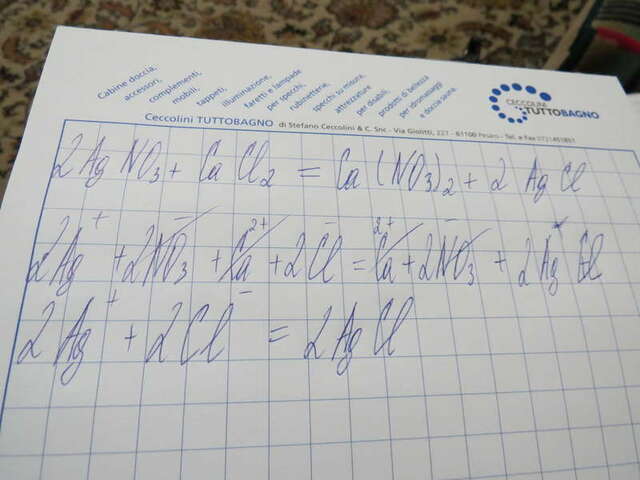 Cabine doccia,
accessori,
complementi,
mobili,
tappeti,
illuminazione,
faretti e lampade
per specchi,
rubinetterie,
specchi su misura,
attrezzature
per disabili,
prodotti di bellezza
per idromassaggi
e docce sauna.
CECCOLINI
TUTTOBAGNO
Ceccolini TUTTOBAGNO di Stefano Ceccolini & C. Snc - Via Giolitti, 227 - 61100 Pesaro - Tel. e Fax 0721451851
2AgNO₃ + CaCl₂ = Ca(NO₃)₂ + 2AgCl
2Ag⁺ + 2NO₃⁻ + Ca²⁺ + 2Cl⁻ = Ca²⁺ + 2NO₃⁻ + 2AgCl
2Ag⁺ + 2Cl⁻ = 2AgCl